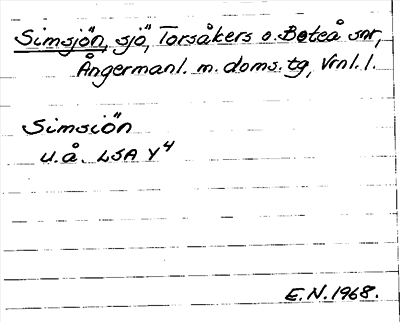 Simsjön, sjö, Torsåkers o. Boteå snr,
Ångermanl. m. doms. tg, Vrnl. l.
Simsiön
u.å. LSA Y4
E.N. 1968.